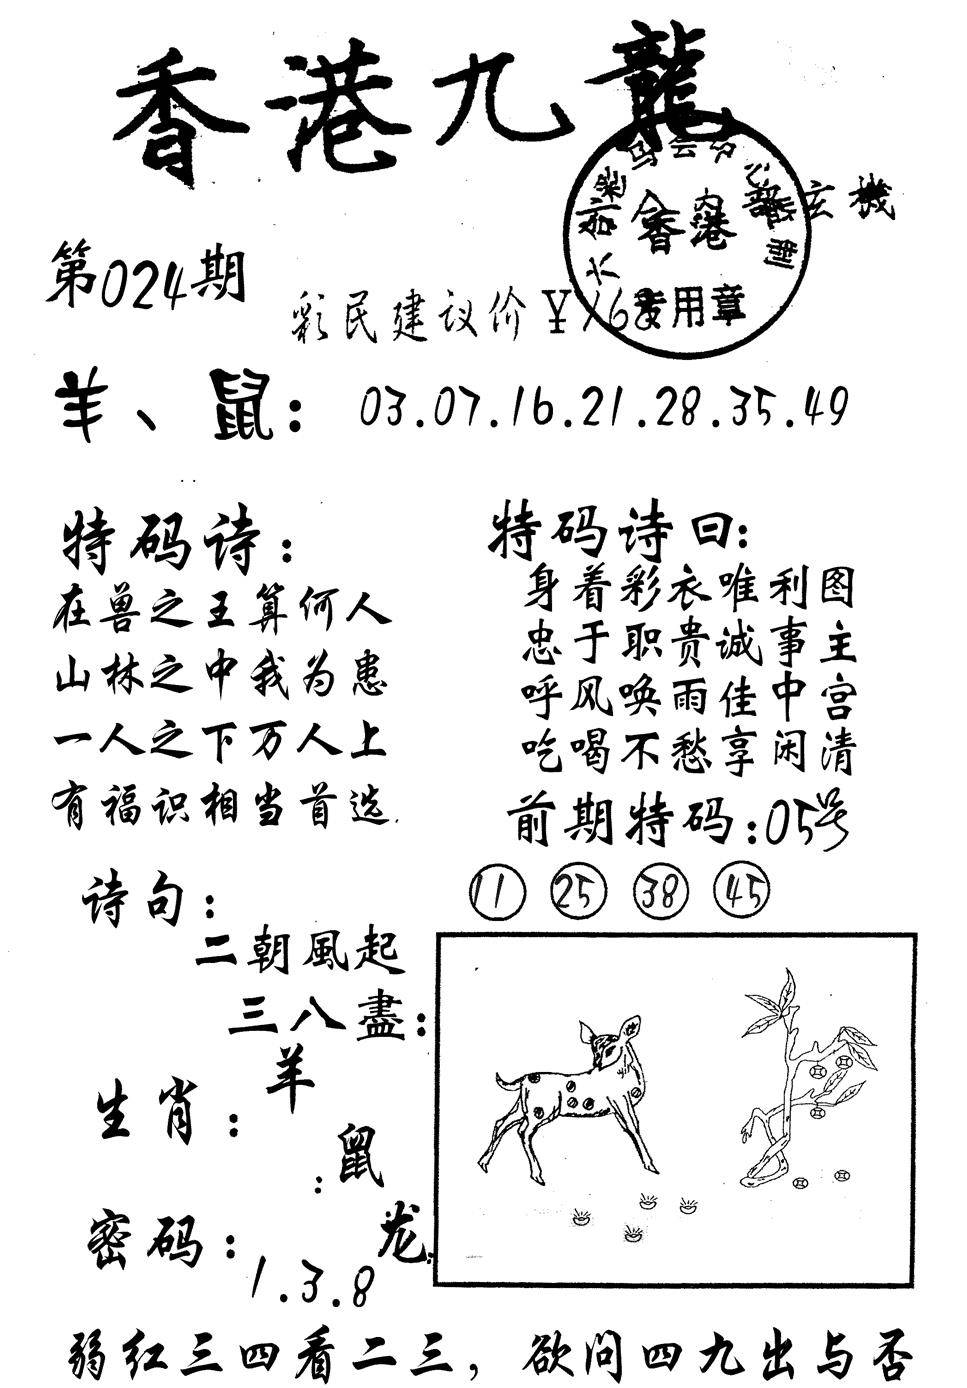 香港九龍
玄機
香港
专用章
第024期
彩民建议价¥168
羊、鼠：03.07.16.21.28.35.49
特码诗：
在兽之王算何人
山林之中我为患
一人之下万人上
有福识相当首选.
特码诗曰：
身着彩衣唯利图
忠于职贵诚事主
呼风唤雨佳中宫
吃喝不愁享闲清
前期特码：05号
11 25 38 45
诗句：
二朝風起
三八盡：
生肖：羊
：鼠
龙：
密码：
1.3.8
弱红三四看二三，欲问四九出与否